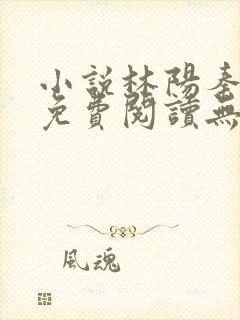 小說林陽
免費閱讀無
風魂